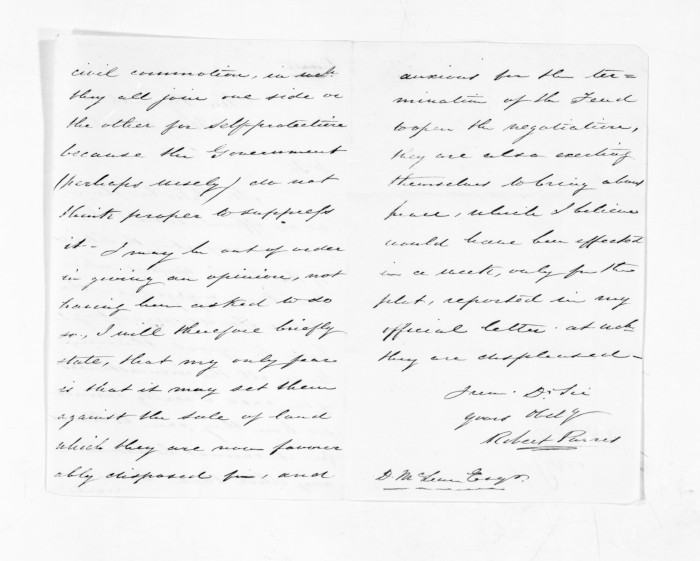 civil commotion, in wch
they all join one side or
the other for self protection
because the Government
(perhaps wisely) do not
think proper to suppress
it - I may be out of order
in giving an opinion, not
having been asked to do
so, I will therefore briefly
state, that my only fear
is that it may set them
against the sale of land
which they are now favour
ably disposed for, and
anxious for the ter=
mination of the Feud
to open the negotiation,
they are also exerting
themselves to bring about
peace, which I believe
would have been effected
in a week, only for the
plot, reported in my
official letter. at wch
they are displeased -
I rem. Dr Sir
yours Obtly
Robert Parris
D McLean Esqr.